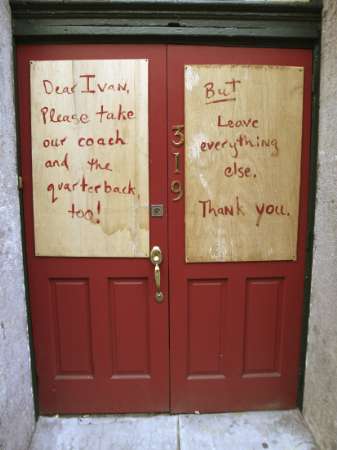 Dear Ivan,
Please take
our coach
and the
quarterback,
too!
319
But
Leave
everything
else.
Thank you.